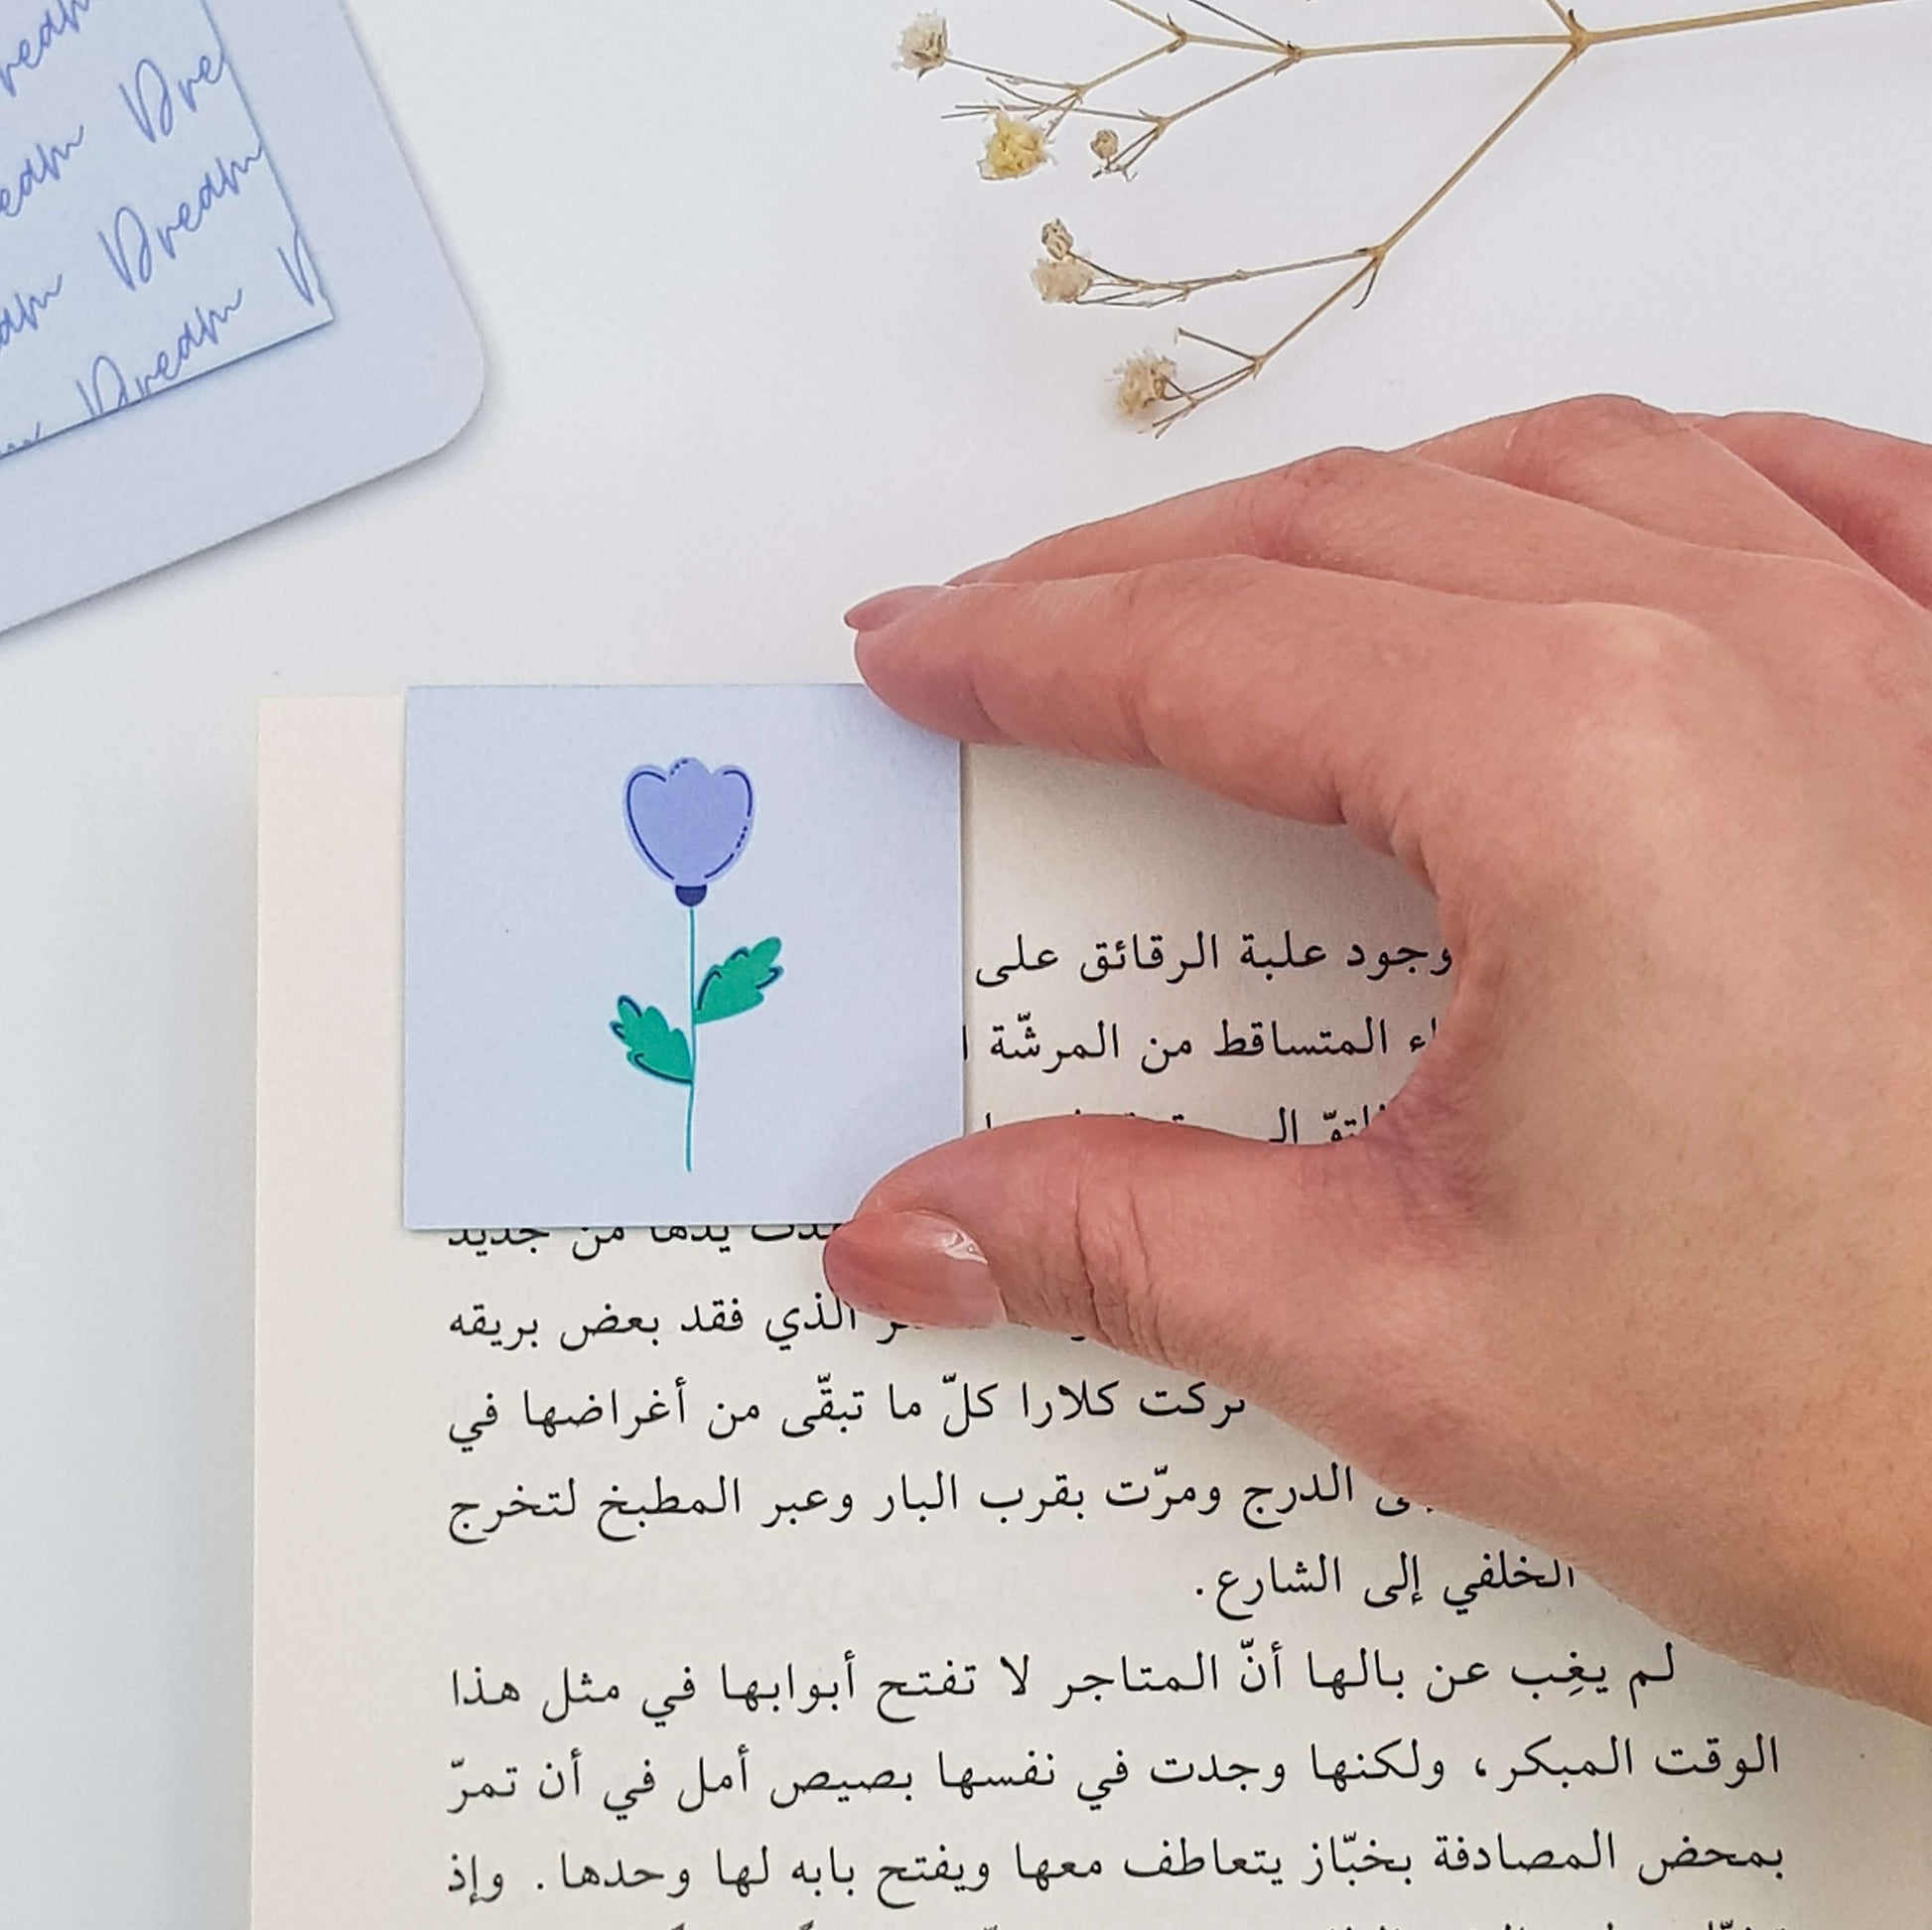 Dream
Dream Dream
Dream
وجود علبة الرقائق على
المتساقط من المرشّة
يدها من جديد
الذي فقد بعض بريقه
تركت كلارا كلّ ما تبقّى من أغراضها في
الدرج ومرّت بقرب البار وعبر المطبخ لتخرج
الخلفي إلى الشارع.
لم يغِب عن بالها أنّ المتاجر لا تفتح أبوابها في مثل هذا
الوقت المبكر، ولكنها وجدت في نفسها بصيص أمل في أن تمرّ
بمحض المصادفة بخبّاز يتعاطف معها ويفتح بابه لها وحدها. وإذ